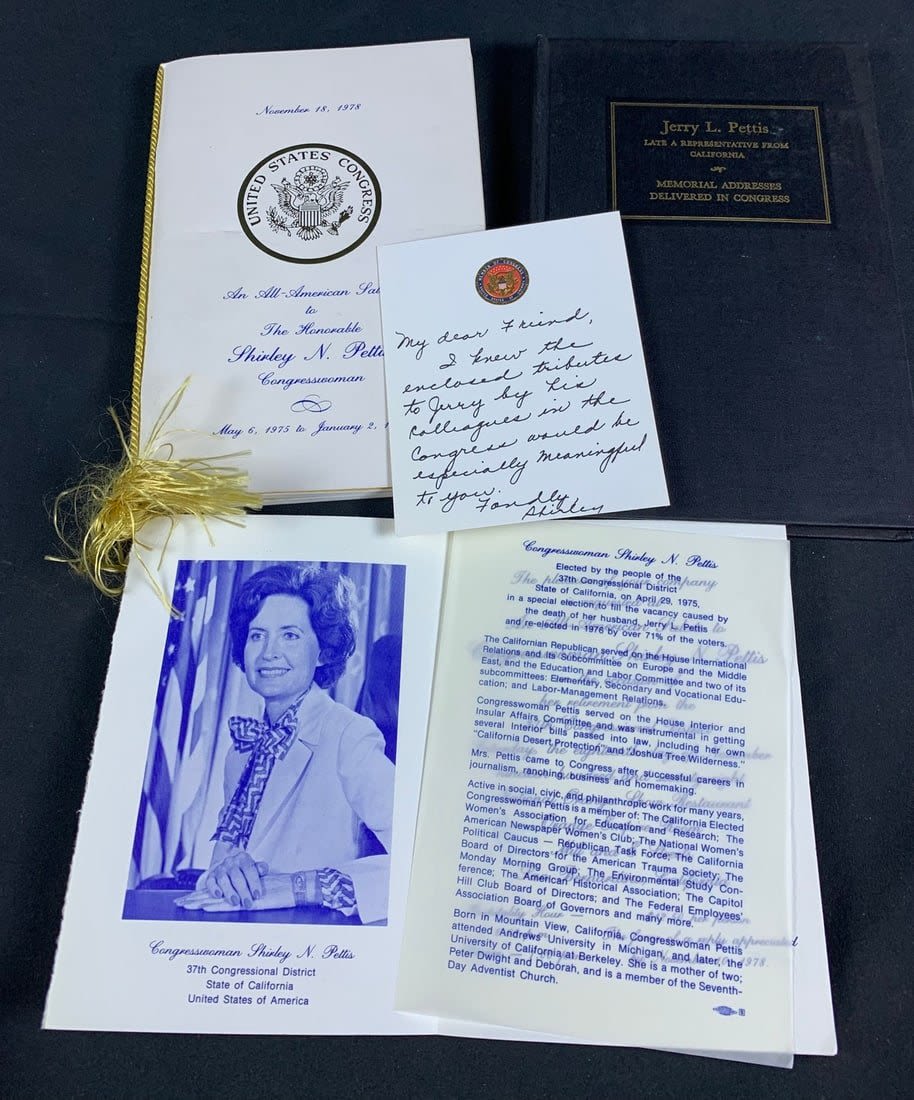 November 18, 1978
UNITED STATES CONGRESS
An All-American
to
The Honorable
Shirley N.
Congresswoman
May 6, 1975 to January 2,
Jerry L. Pettis
LATE A REPRESENTATIVE FROM
CALIFORNIA
MEMORIAL ADDRESSES
DELIVERED IN CONGRESS
MEMBER OF CONGRESS
My dear Friend,
I knew the
enclosed tributes
to Jerry by his
colleagues in the
Congress would be
especially meaningful
to you.
Fondly,
Shirley
Congresswoman Shirley N. Pettis
37th Congressional District
State of California
United States of America
Congresswoman Shirley N. Pettis
Elected by the people of the
37th Congressional District
State of California, on April 29, 1975,
in a special election to fill the vacancy caused by
the death of her husband, Jerry L. Pettis
and re-elected in 1976 by over 71% of the voters.
The Californian Republican served on the House International
Relations and its Subcommittee on Europe and the Middle
East, and the Education and Labor Committee and two of its
subcommittees: Elementary, Secondary and Vocational Edu-
cation; and Labor-Management Relations.
Congresswoman Pettis served on the House Interior and
Insular Affairs Committee and was instrumental in getting
several Interior bills passed into law, including her own
"California Desert Protection" and "Joshua Tree Wilderness."
Mrs. Pettis came to Congress after successful careers in
journalism, ranching, business and homemaking.
Active in social, civic, and philanthropic work for many years,
Congresswoman Pettis is a member of: The California Elected
Women's Association for Education and Research; The
American Newspaper Women's Club; The National Women's
Political Caucus — Republican Task Force; The California
Board of Directors for the American Trauma Society; The
Monday Morning Group; The Environmental Study Con-
ference; The American Historical Association; The Capitol
Hill Club Board of Directors; and The Federal Employees'
Association Board of Governors and many more.
Born in Mountain View, California, Congresswoman Pettis
attended Andrews University in Michigan, and later, the
University of California at Berkeley. She is a mother of two;
Peter Dwight and Deborah, and is a member of the Seventh-
Day Adventist Church.